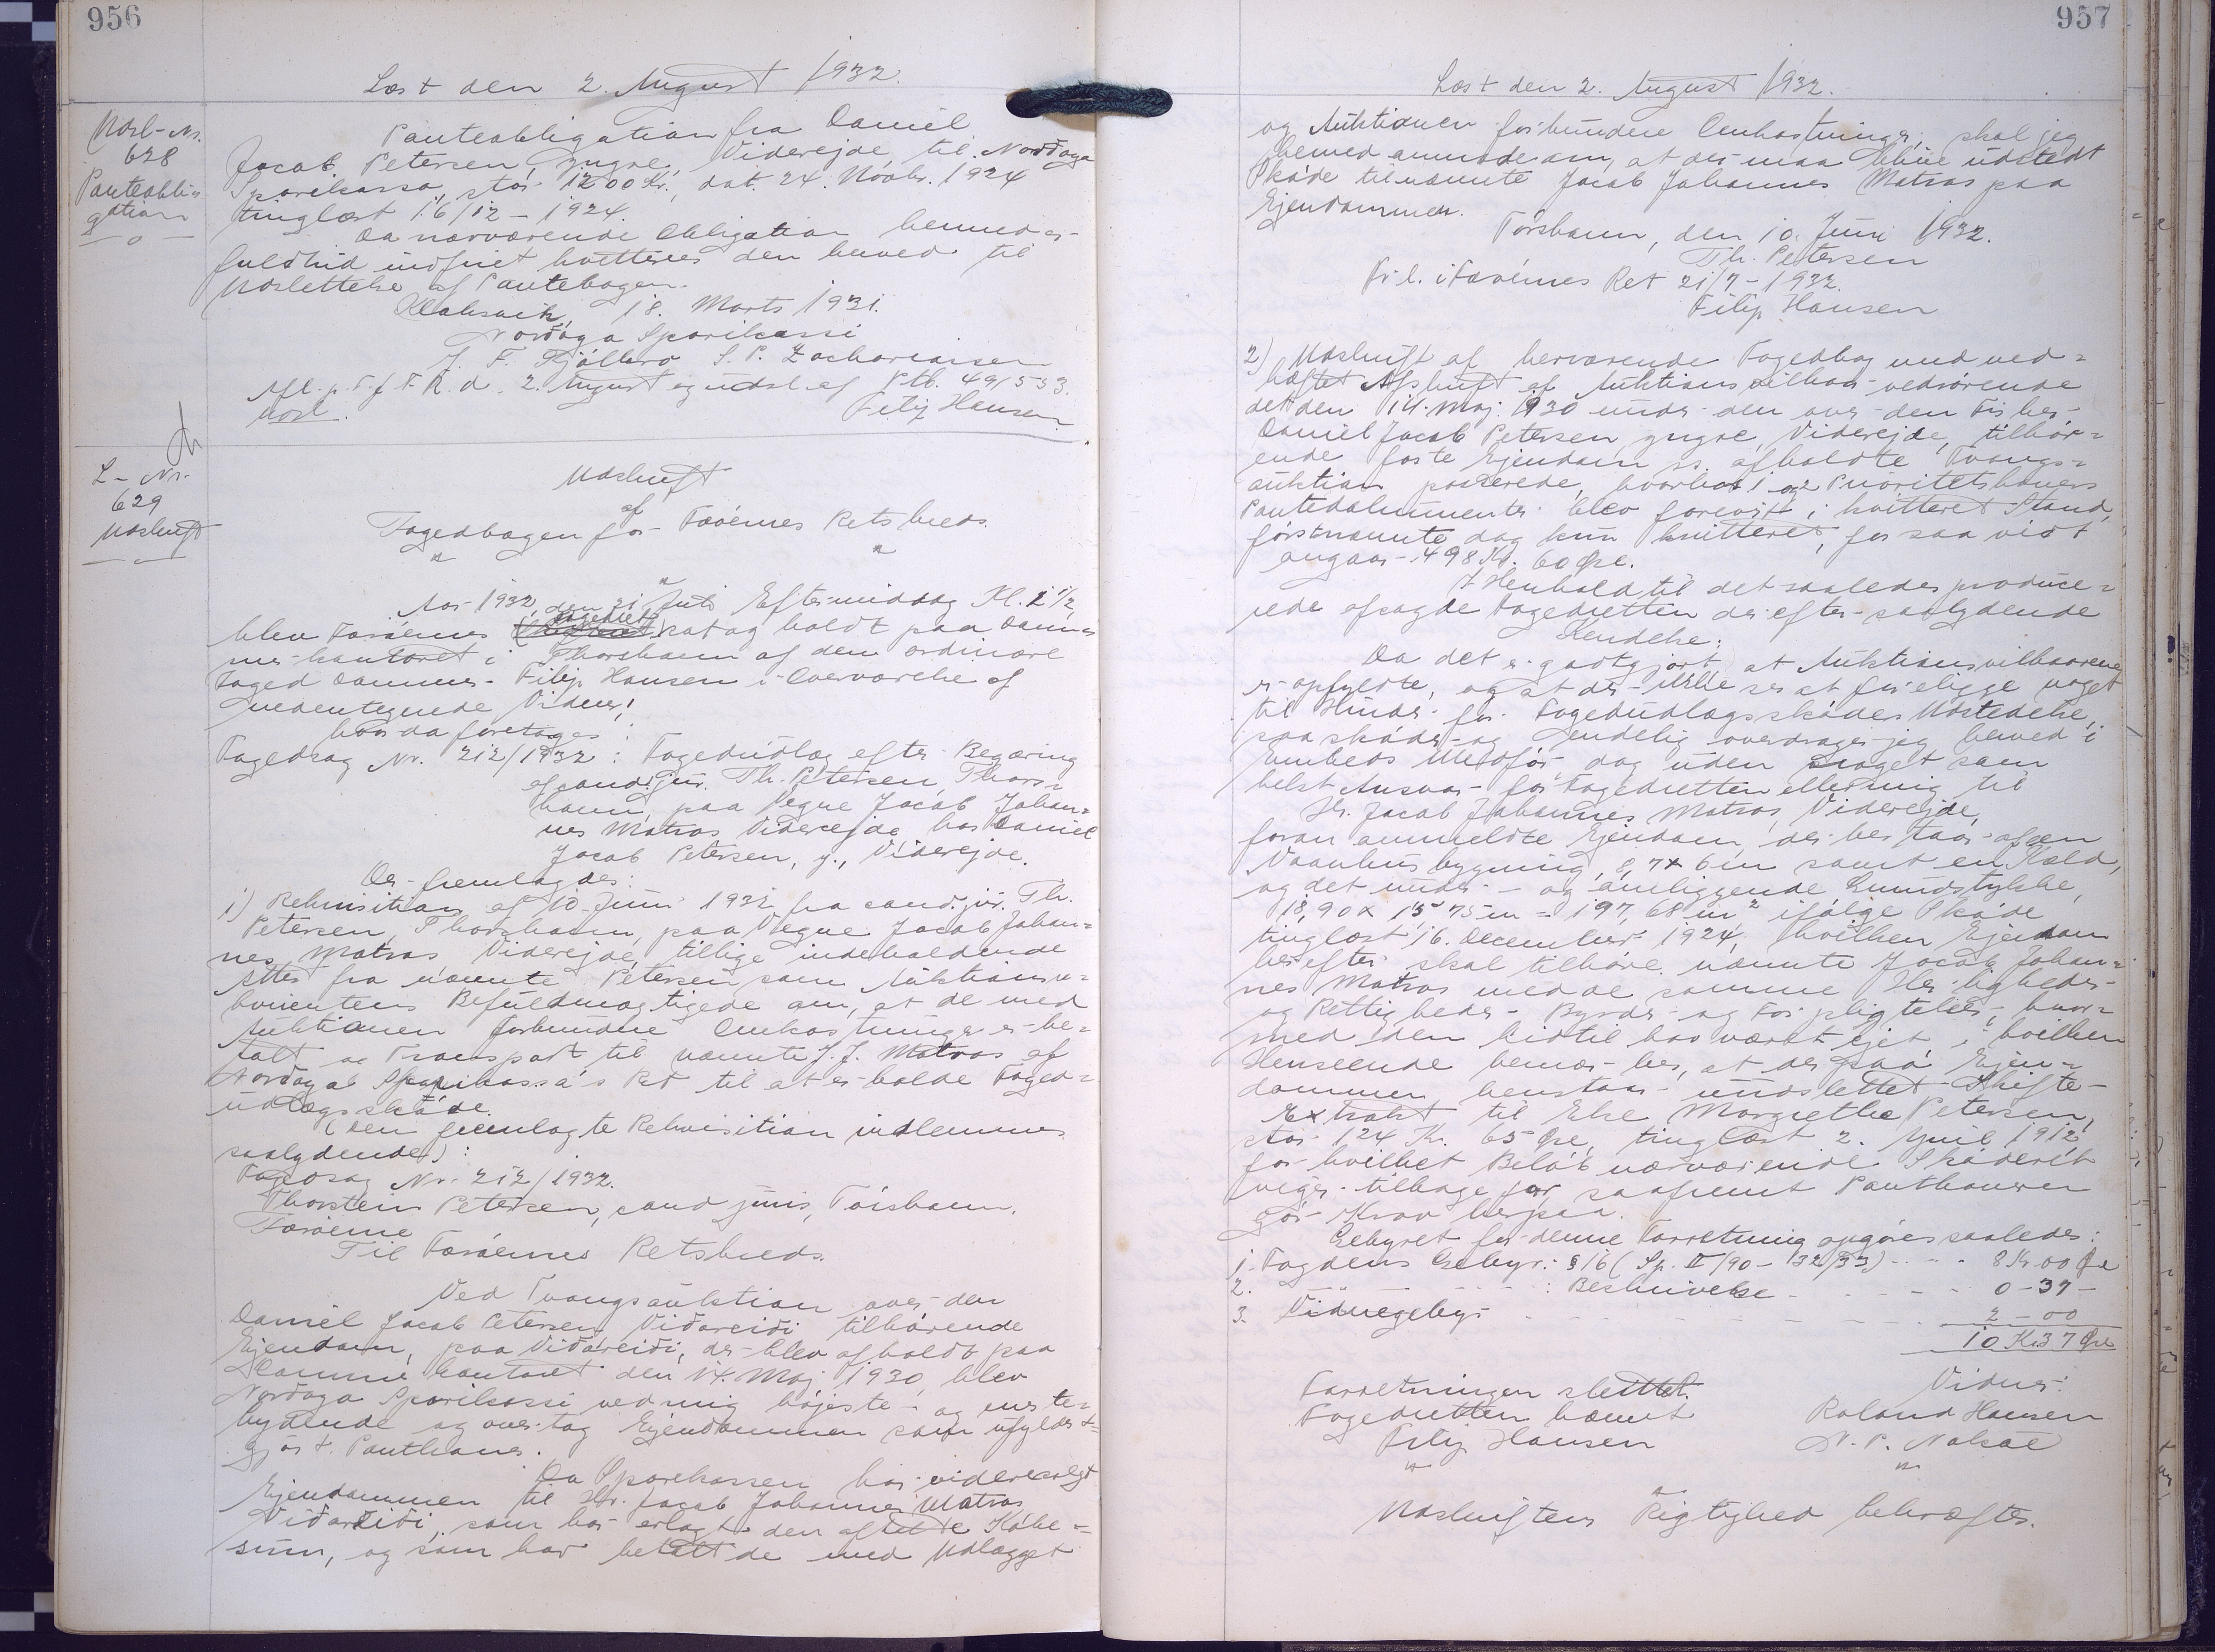 956
Læst den 2. August 1932.
Udsl-Nr.
628
Panteobli-
gation
Panteobligation fra Daniel
Jacob Petersen, yngre, Viderejde til Nordoya
Sparikassa, stor 1200 Kr., dat. 24. Novbr. 1924
tinglæst 16/12 - 1924.
Da nærværende Obligation hermed er
fuldtud indfriet kvitteres den herved til
Udslettelse af Pantebogen.
Klaksvik, 18. Marts 1931.
Nordoya Sparikassi
J. F. Kjølbro S. P. Zachariasen
Afl. p. T. f. F. R. d. 2. August og udsl. af Ptb. 49/533.
Udsl. Filip Hansen
L - Nr.
629
Udskrift
Udskrift
af
Fogedbogen for Færøernes Retskreds.
Aar 1932, den 21 Juli Eftermiddag Kl. 1 1/2
blev Færøernes Fogedret sat og holdt paa Dommer-
kontoret i Thorshavn af den ordinære
Foged Dommer Filip Hansen i Overværelse af
undertegnede Vidner;
hvor da foretoges:
Fogedsag Nr. 212/1932: Fogedudlæg efter Begæring
af cand. jur. Th. Petersen, Thors-
havn, paa Vegne Jacob Johan-
nes Matras Viderejde hos Daniel
Jacob Petersen, y., Viderejde.
Der fremlagdes:
1) Rekvisition af 10 Juni 1932 fra cand. jur. Th.
Petersen, Thorshavn, paa Vegne Jacob Johan-
nes Matras Viderejde, tillige indeholdende
Attest fra nævnte Petersen som Auktionsre-
kvirentens Befuldmægtigede om, at de med
Auktionen forbundne Omkostninger er be-
talt og Transport til nævnte J. J. Matras af
Nordoya Sparikassa's Ret til at erholde Foged-
udlægsskøde.
(Den fremlagte Rekvisition indlemmes
saalydende):
Fogedsag Nr. 212/1932.
Thorstein Petersen, cand juris, Tórshavn,
Færøerne
Til Færøernes Retskreds.
Ved Tvangsauktion over den
Daniel Jacob Petersen Viðareiði tilhørende
Ejendom, paa Viðareiði, der blev afholdt paa
Dommerkontoret den 14. Maj 1930, blev
Nordoya Sparikassi ved mig højeste- og eneste-
bydende og overtog Ejendommen som ufyldest-
gjort Panthaver.
Da Sparekassen har videresolgt
Ejendommen til Hr. Jacob Johannes Matras
Viðareiði, som har erlagt den aftalte Købe-
sum, og som har betalt de med Udlægget
957
Læst den 2. August 1932.
og Auktionen forbundne Omkostninger, skal jeg
hermed anmode om, at der maa blive udstedt
Skøde til nævnte Jacob Johannes Matras paa
Ejendommen.
Tórshavn, den 10. Juni 1932.
Th. Petersen
Fr. l. i Færøernes Ret 21/7 - 1932.
Filip Hansen
2) Udskrift af herværende Fogedbog med ved-
hæftet Afskrift af Auktionsvilkaar vedrørende
det den 14. maj 1930 under den over den Fisker
Daniel Jacob Petersen, yngre, Viderejde, tilhør-
ende faste Ejendom m. afholdte Tvangs-
auktion passerede, hvorhos 1 og 2 Prioritetshavers
Pantedokumenter blev forevist i kvitteret Stand,
førstnævnte dog kun kvitteret, for saa vidt
angaar 498 Kr. 60 Øre.
I Henhold til det saaledes produce-
rede afsagde Fogedretten derefter saalydende
Kendelse:
Da det er godtgjort, at Auktionsvilkaarene
er opfyldte, og at der ikke ses at foreligge noget
til Hinder for Fogedudlægsskødes Udstedelse,
saa skøder og endelig overdrager jeg herved i
Embeds Medfør dog uden noget som
helst Ansvar for Fogedretten eller mig til
Hr. Jacob Johannes Matras, Viderejde,
foran anmeldte Ejendom, der bestaar af en
Vaanhusbygning, 8,7 x 6 m samt en Kæld,
og det under- og omliggende Grundstykke,
18,90 x 15,75 m = 197,68 m² ifølge Skøde
tinglæst 16. December 1924, hvilken Ejendom
herefter skal tilhøre nævnte Jacob Johan-
nes Matras med de samme Herligheder
og Rettigheder - Byrder og Forpligtelser, hvor-
med den hidtil har været ejet, i hvilken
Henseende bemærkes, at der paa Ejen-
dommen henstaar uudslettet Skifte-
Extrakt til Else Margrethe Petersen,
stor 124 Kr. 65 Øre, tinglæst 2. April 1912
for hvilket Beløb nærværende Skøderet
viger tilbage for, saafremt Panthaveren
gør Krav herpaa.
Gebyret for denne Forretning opgøres saaledes:
1. Fogdens Gebyr: § 16 (Sp. II/90 - 132/33) - - - 8 Kr. 00 Øre
2. - : Beskrivelse - - - - - 0 - 37 -
3. Vidnegebyr - - - - - - - 2 - 00
10 Kr. 37 Øre
Forretningen sluttet.
Fogedretten hævet
Filip Hansen
Vidner:
Roland Hansen
N. P. Nolsøe
Udskriftens Rigtighed bekræftes.